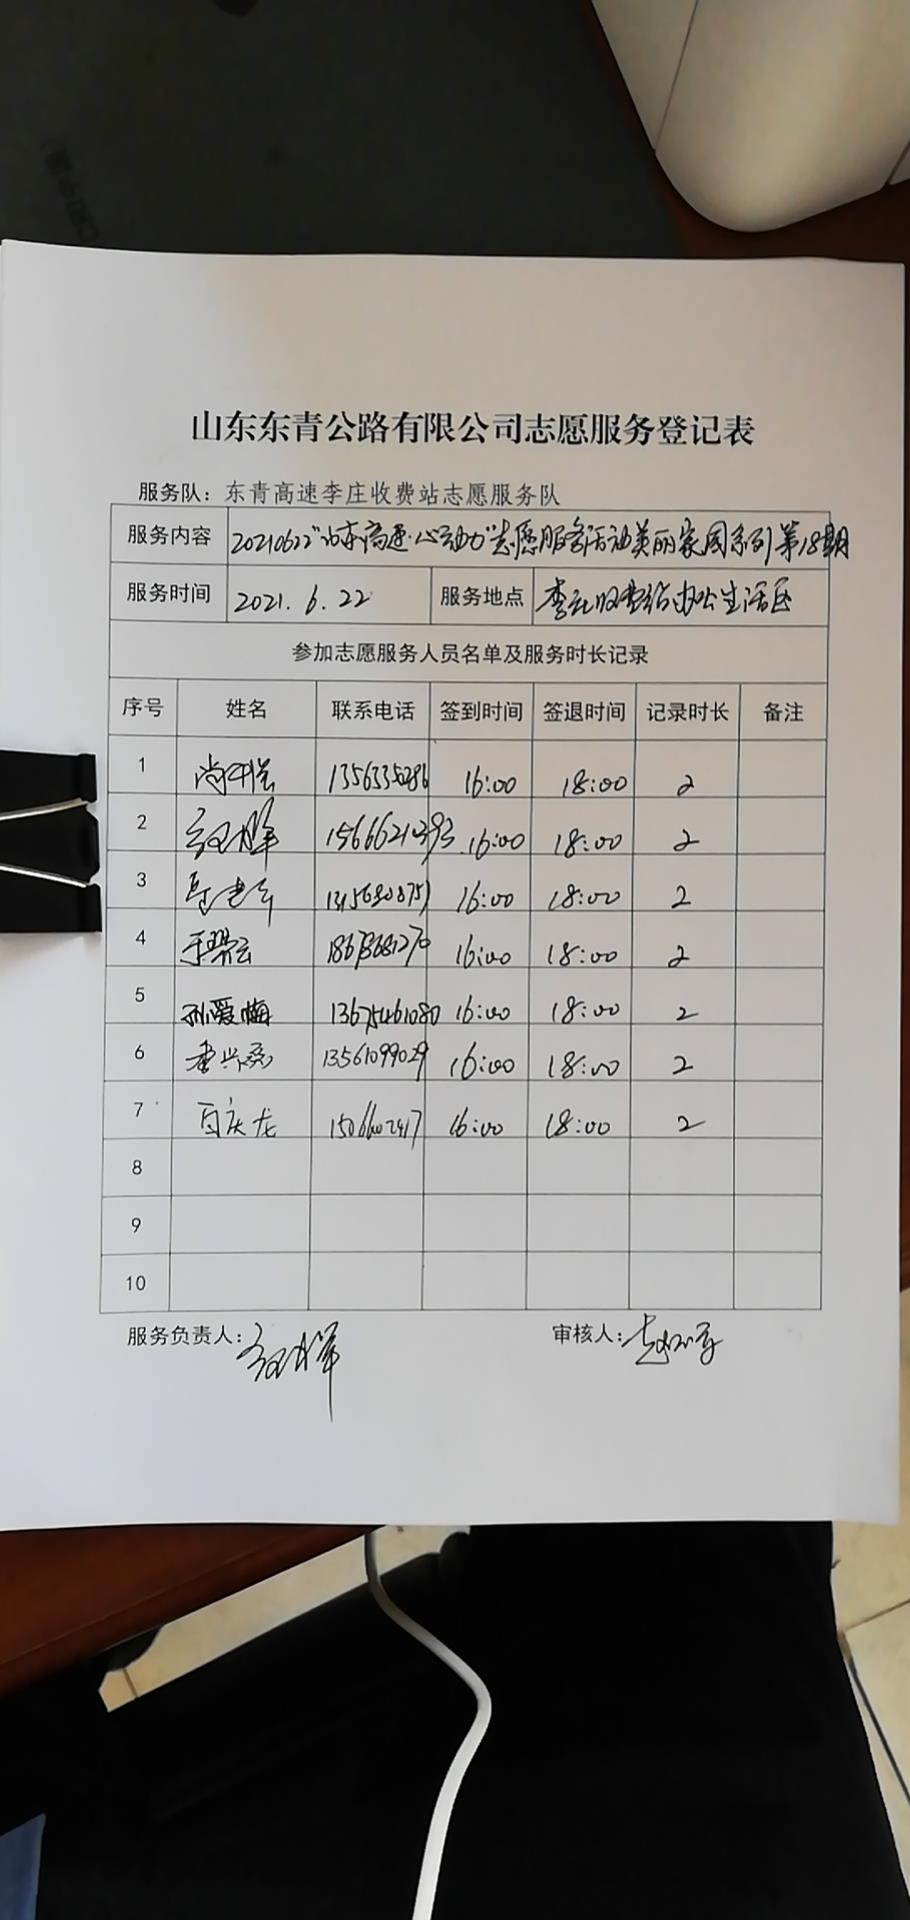 山东东青公路有限公司志愿服务登记表
服务队：东青高速李庄收费站志愿服务队
服务内容 20210622"山东高速·心动力"志愿服务活动美丽家园系列第18期
服务时间 2021.6.22 服务地点 李庄收费站办公生活区
参加志愿服务人员名单及服务时长记录
序号 姓名 联系电话 签到时间 签退时间 记录时长 备注
1 16:00 18:00 2
2 15666212393 16:00 18:00 2
3 16:00 18:00 2
4 18678681270 16:00 18:00 2
5 孙爱梅 13675461080 16:00 18:00 2
6 13561099029 16:00 18:00 2
7 庆龙 16:00 18:00 2
8
9
10
服务负责人： 审核人：